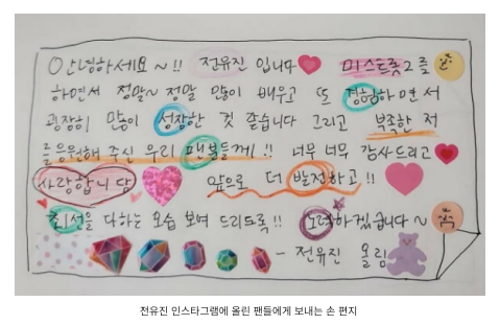 안녕하세요~!! 전유진 입니다 미스트롯2를
하면서 정말~ 정말 많이 배우고 또 경험하면서
굉장히 많이 성장한 것 같습니다 그리고 부족한 저
를 응원해 주신 우리 팬분들께!! 너무 너무 감사드리고
사랑합니담 앞으로 더 발전하고!!
최선을 다하는 모습 보여 드리도록!! 노력하겠습니다~
- 전유진 올림
전유진 인스타그램에 올린 팬들에게 보내는 손 편지